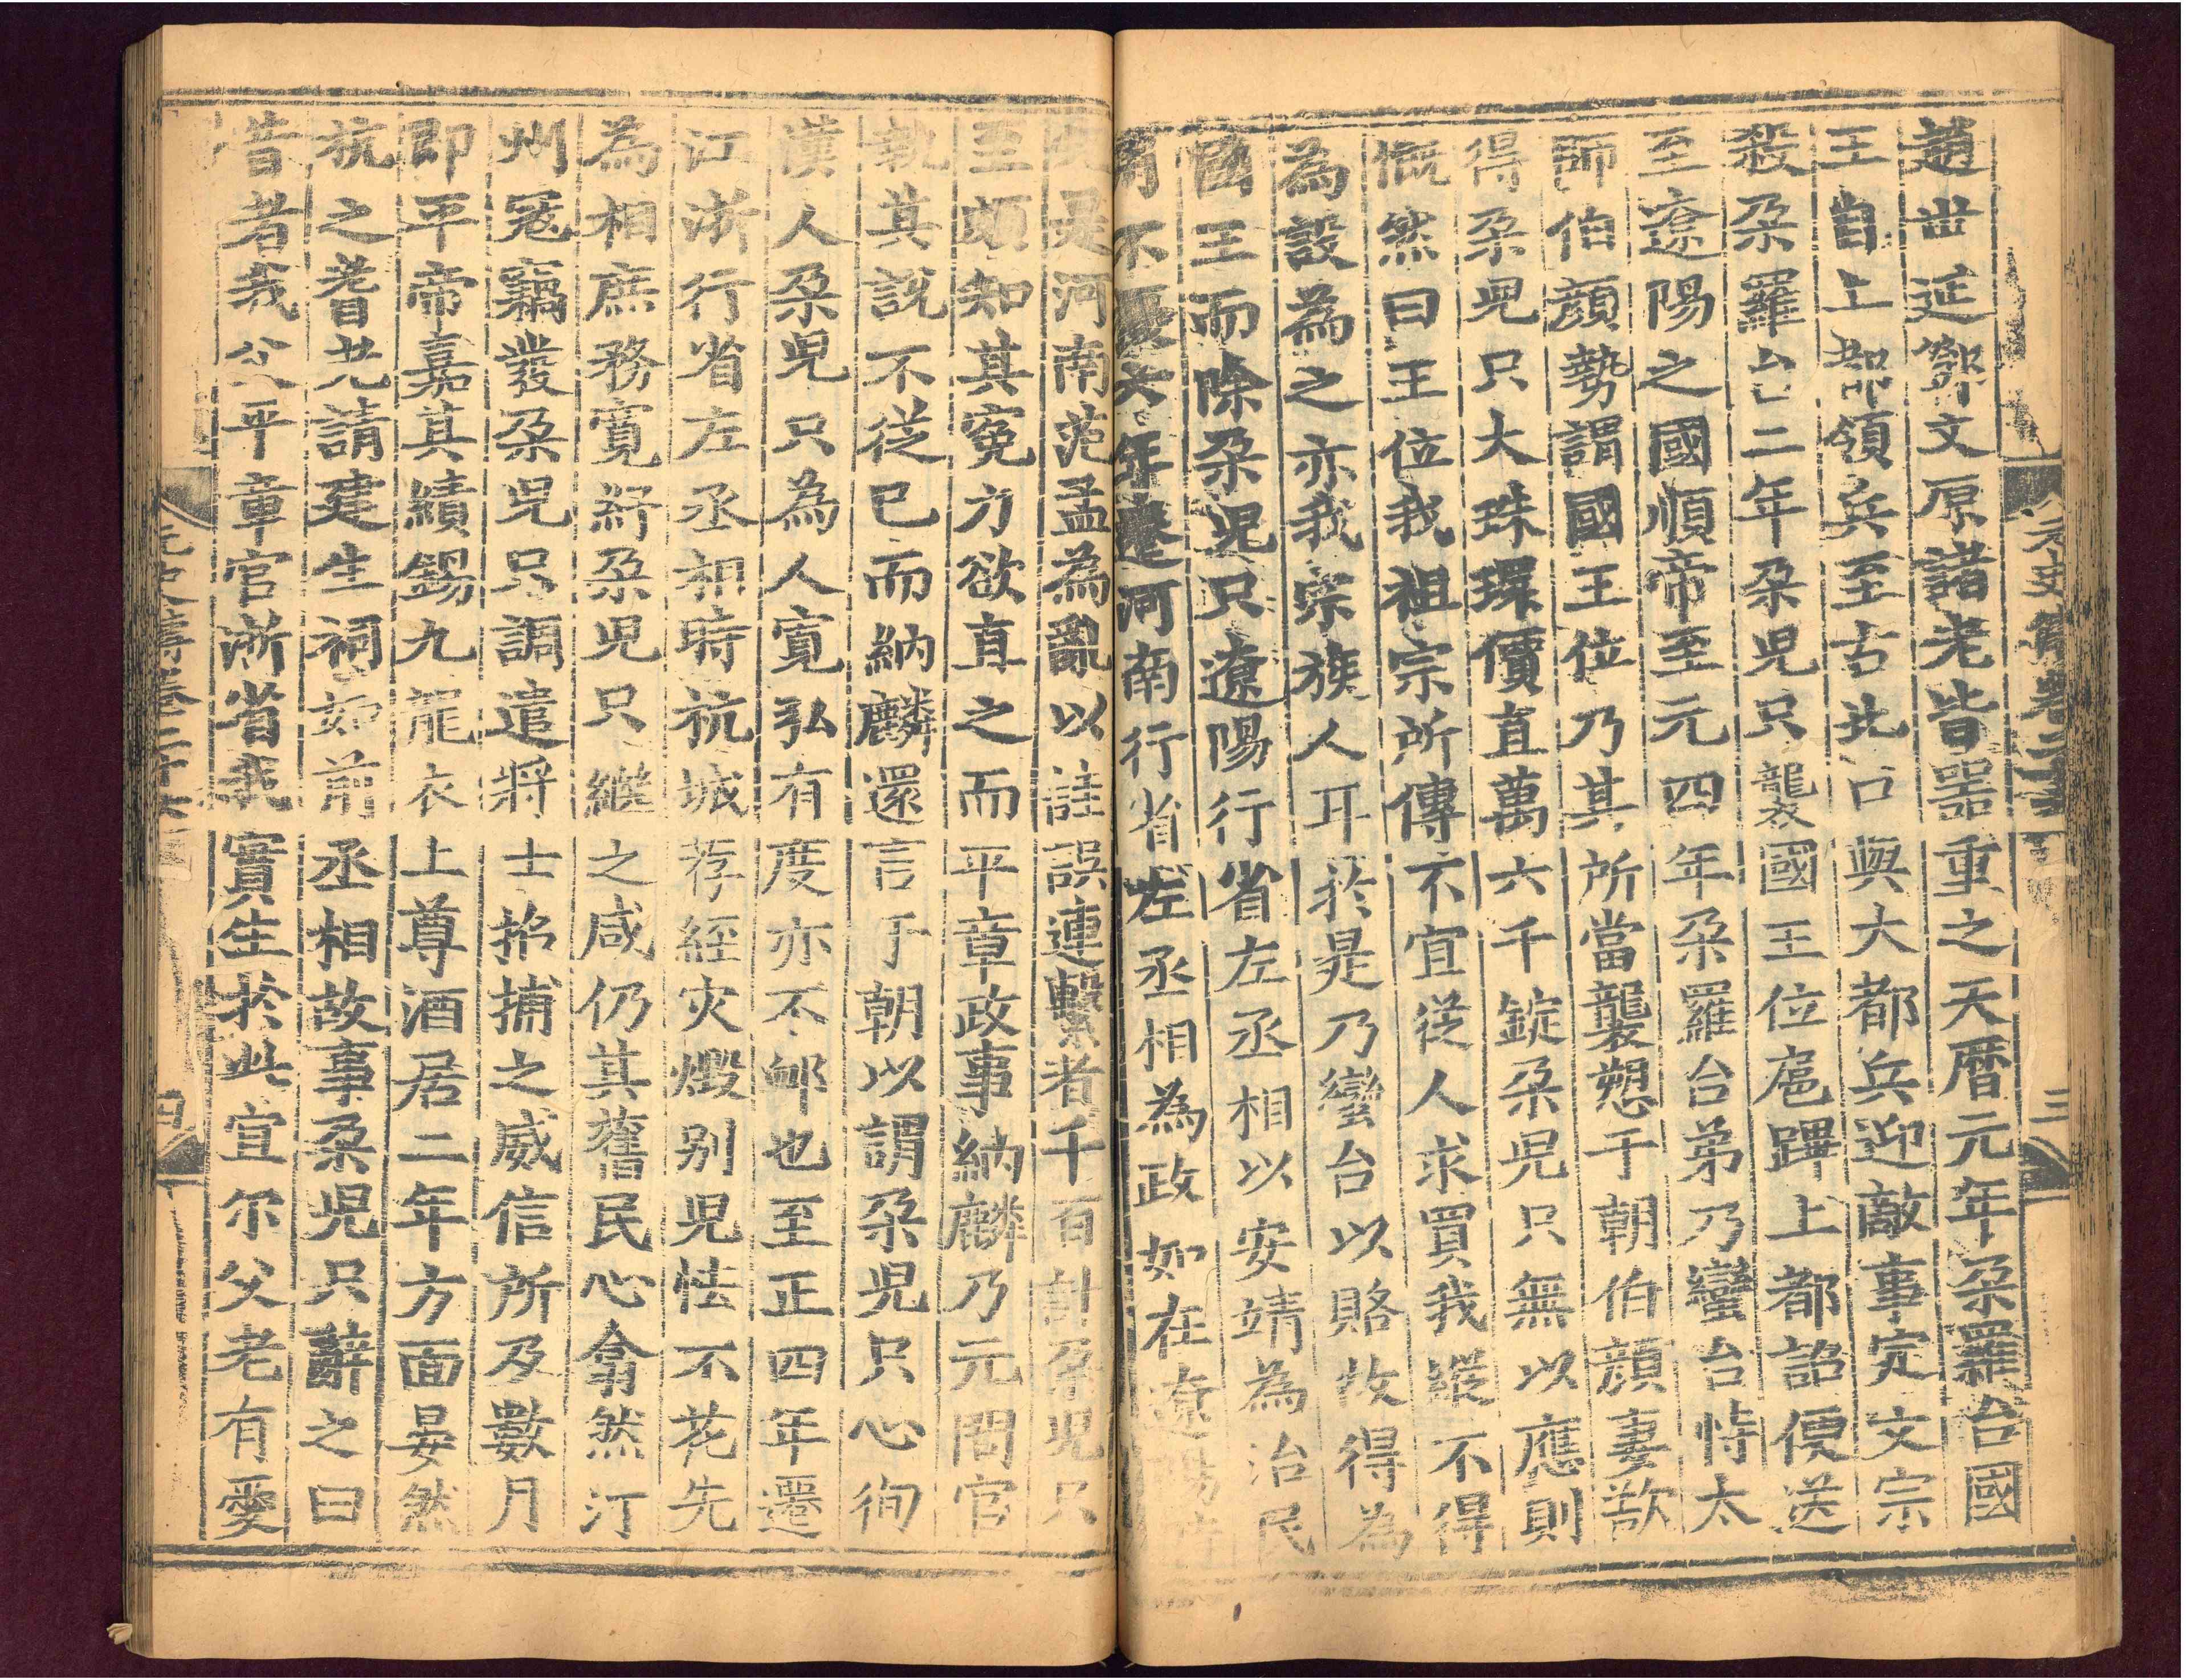 元史傳卷二十六
三
趙世延鄧文原諸老皆器重之天曆元年朶羅台國
王自上都領兵至古北口與大都兵迎敵事定文宗
殺朶羅台二年朶兒只襲國王位扈蹕上都詔便送
至遼陽之國順帝至元四年朶羅台弟乃蠻台恃太
師伯顏勢謂國王位乃其所當襲愬于朝伯顏妻欲
得朶兒只大珠環價直萬六千錠朶兒只無以應則
慨然曰王位我祖宗所傳不宜從人求買我縱不得
為設為之亦我宗族人耳於是乃蠻台以賂故得為
國王而除朶兒只遼陽行省左丞相以安靖為治民
不 六年遷河南行省左丞相為政如在遼陽時
是河南范孟為亂以詿誤連繫者千百計朶兒只
至頗知其冤力欲直之而平章政事納麟乃元問官
執其說不從已而納麟還言于朝以謂朶兒只心徇
漢人朶兒只為人寬弘有度亦不䘏也至正四年遷
江浙行省左丞相時杭城荐經灾燬别兒怯不花先
為相庶務寬紓朶兒只繼之咸仍其舊民心翕然汀
州寇竊發朶兒只調遣將士招捕之威信所及數月
即平帝嘉其績錫九龍衣上尊酒居二年方面晏然
杭之耆老請建生祠如前丞相故事朶兒只辭之曰
昔者我父平章官浙省我實生於此宜尔父老有愛
元史傳卷二十六
四